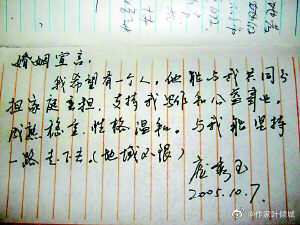 婚姻宣言。
我希望有一个人，他能与我共同分
担家庭重担，支持我工作和公益事业。
成熟稳重，性格温和。与我能坚持
一路走下去。（地域不限）
2005.10.7.
@作家叶倾城